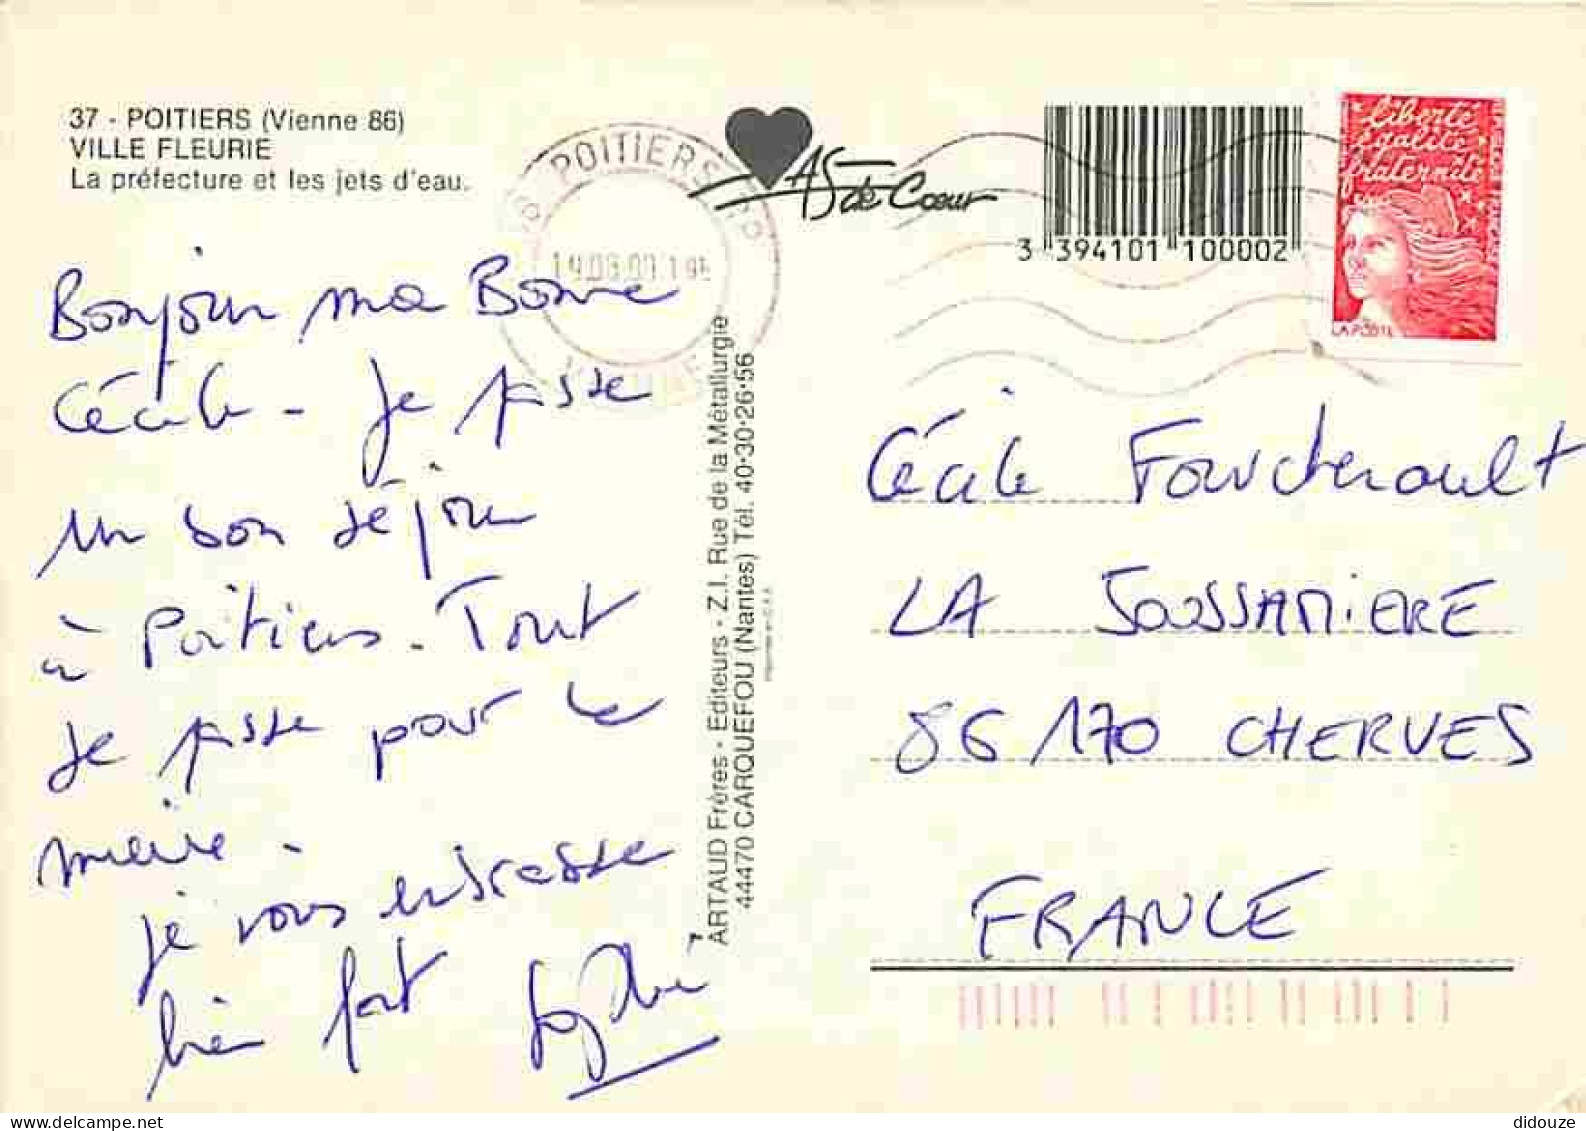 37 - POITIERS (Vienne 86)
VILLE FLEURIE
La préfecture et les jets d'eau.
POITIERS
AS de Cœur
3 394101 100002
liberté
égalité
fraternité
LA POSTE
Bonjour ma Bonne
Cécile - Je passe
un bon séjour
à Poitiers. Tout
se passe pour le
mieux.
je vous embrasse
bien fort Sophie
ARTAUD Frères - Editeurs - Z.I. Rue de la Métallurgie
44470 CARQUEFOU (Nantes) Tél. 40·30·26·56
Cécile Fouchereault
LA
86170 CHERVES
FRANCE
delcampe.net
didouze